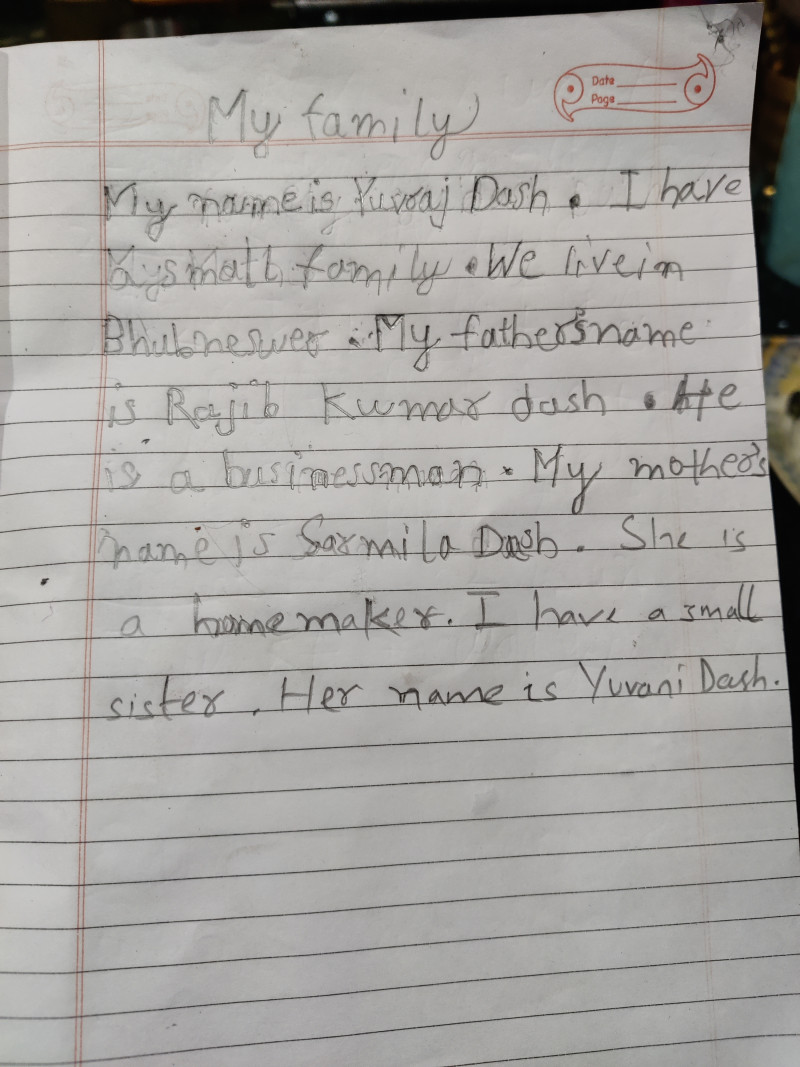 Date
Page
My family
My name is Yuvraj Dash. I have
a small family. We live in
Bhubneswer. My father's name
is Rajib Kumar dash. He
is a businessman. My mother's
name is Sarmila Dash. She is
a home maker. I have a small
sister. Her name is Yuvani Dash.